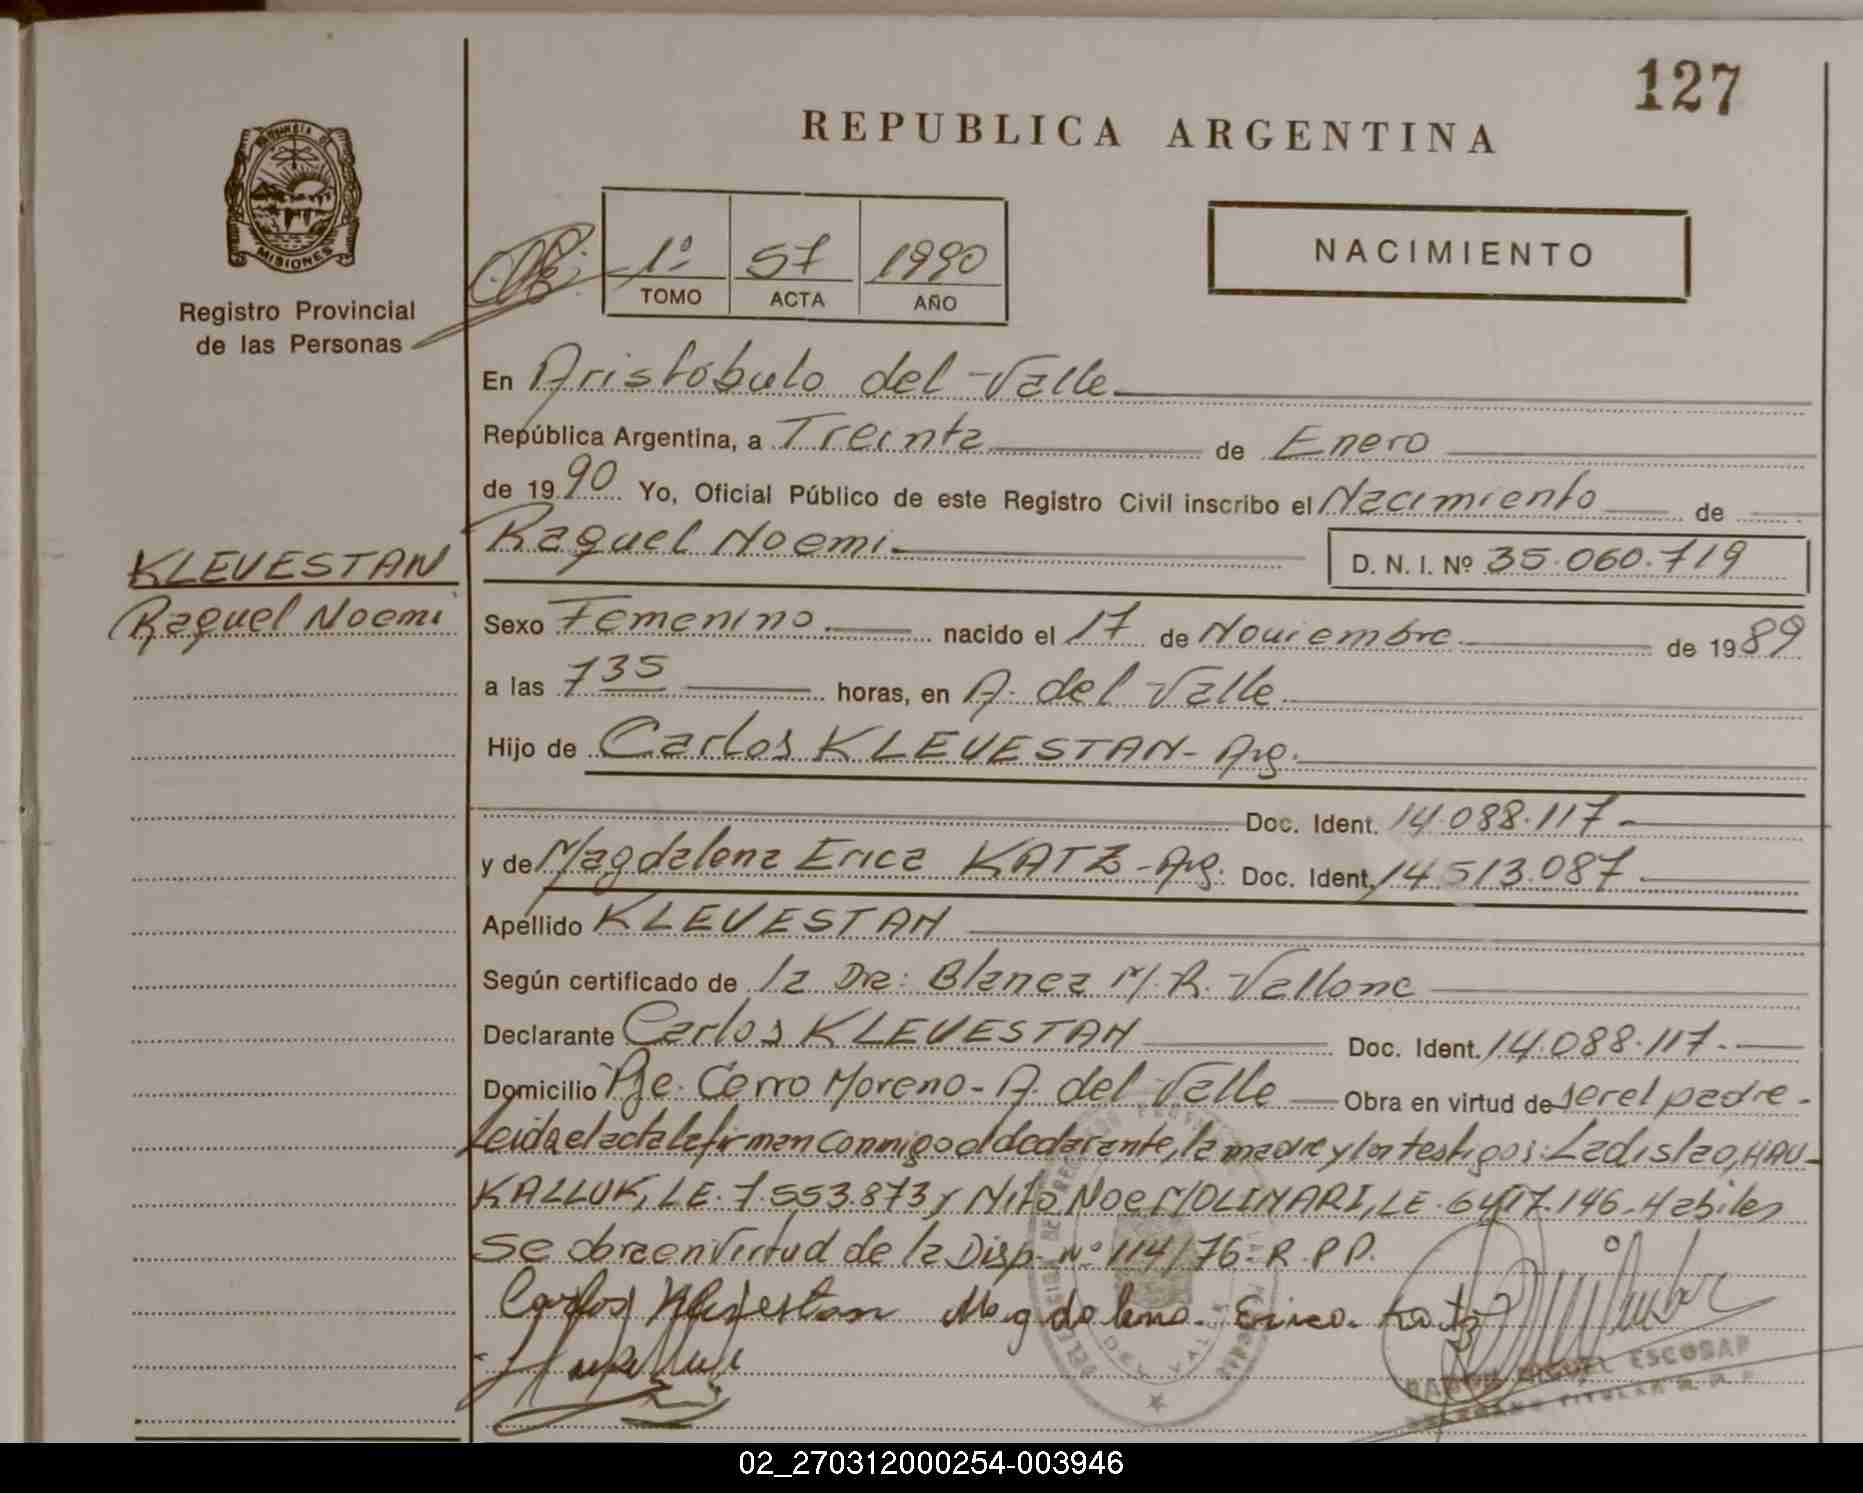 127
REPUBLICA ARGENTINA
MISIONES
Registro Provincial
de las Personas
1º 57 1990
TOMO ACTA AÑO
NACIMIENTO
En Aristóbulo del Valle
República Argentina, a Treinta de Enero
de 1990 Yo, Oficial Público de este Registro Civil inscribo el Nacimiento de
Raquel Noemi D. N. I. Nº 35.060.719
KLEVESTAN
Raquel Noemi
Sexo Femenino nacido el 17 de Noviembre de 1989
a las 7 35 horas, en A. del Valle
Hijo de Carlos KLEVESTAN - Arg.
Doc. Ident. 14.088.117
y de Magdalena Erica KATZ - Arg. Doc. Ident. 14.513.087
Apellido KLEVESTAN
Según certificado de la Dra: Blanca M. R. Vallone
Declarante Carlos KLEVESTAN Doc. Ident. 14.088.117.
Domicilio Pje. Cerro Moreno - A. del Valle Obra en virtud de ser el padre -
Leida el acta la firman conmigo el declarante, la madre y los testigos: Ladislao, HAU-
KALLUK, LE. 7.553.873 y Nito Noe MOLINARI, LE. 6417.146. Habiles
Se obra en virtud de la Disp. Nº 114/76. R.P.P.
Carlos Klevestan Magdalena Erica Katz
DEL VALLE
RAMON MIGUEL ESCOBAR
TITULAR
02_270312000254-003946